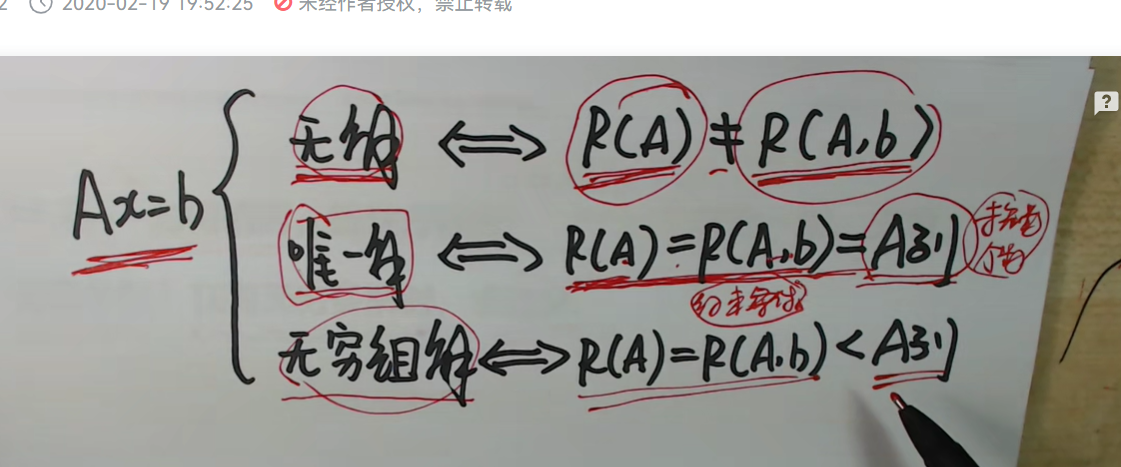 2020-02-19 19:52:25 未经作者授权，禁止转载
?
Ax=b
无解 ⟺ R(A) ≠ R(A,b)
唯一解 ⟺ R(A)=R(A,b)=A列
无穷组解 ⟺ R(A)=R(A,b)<A列